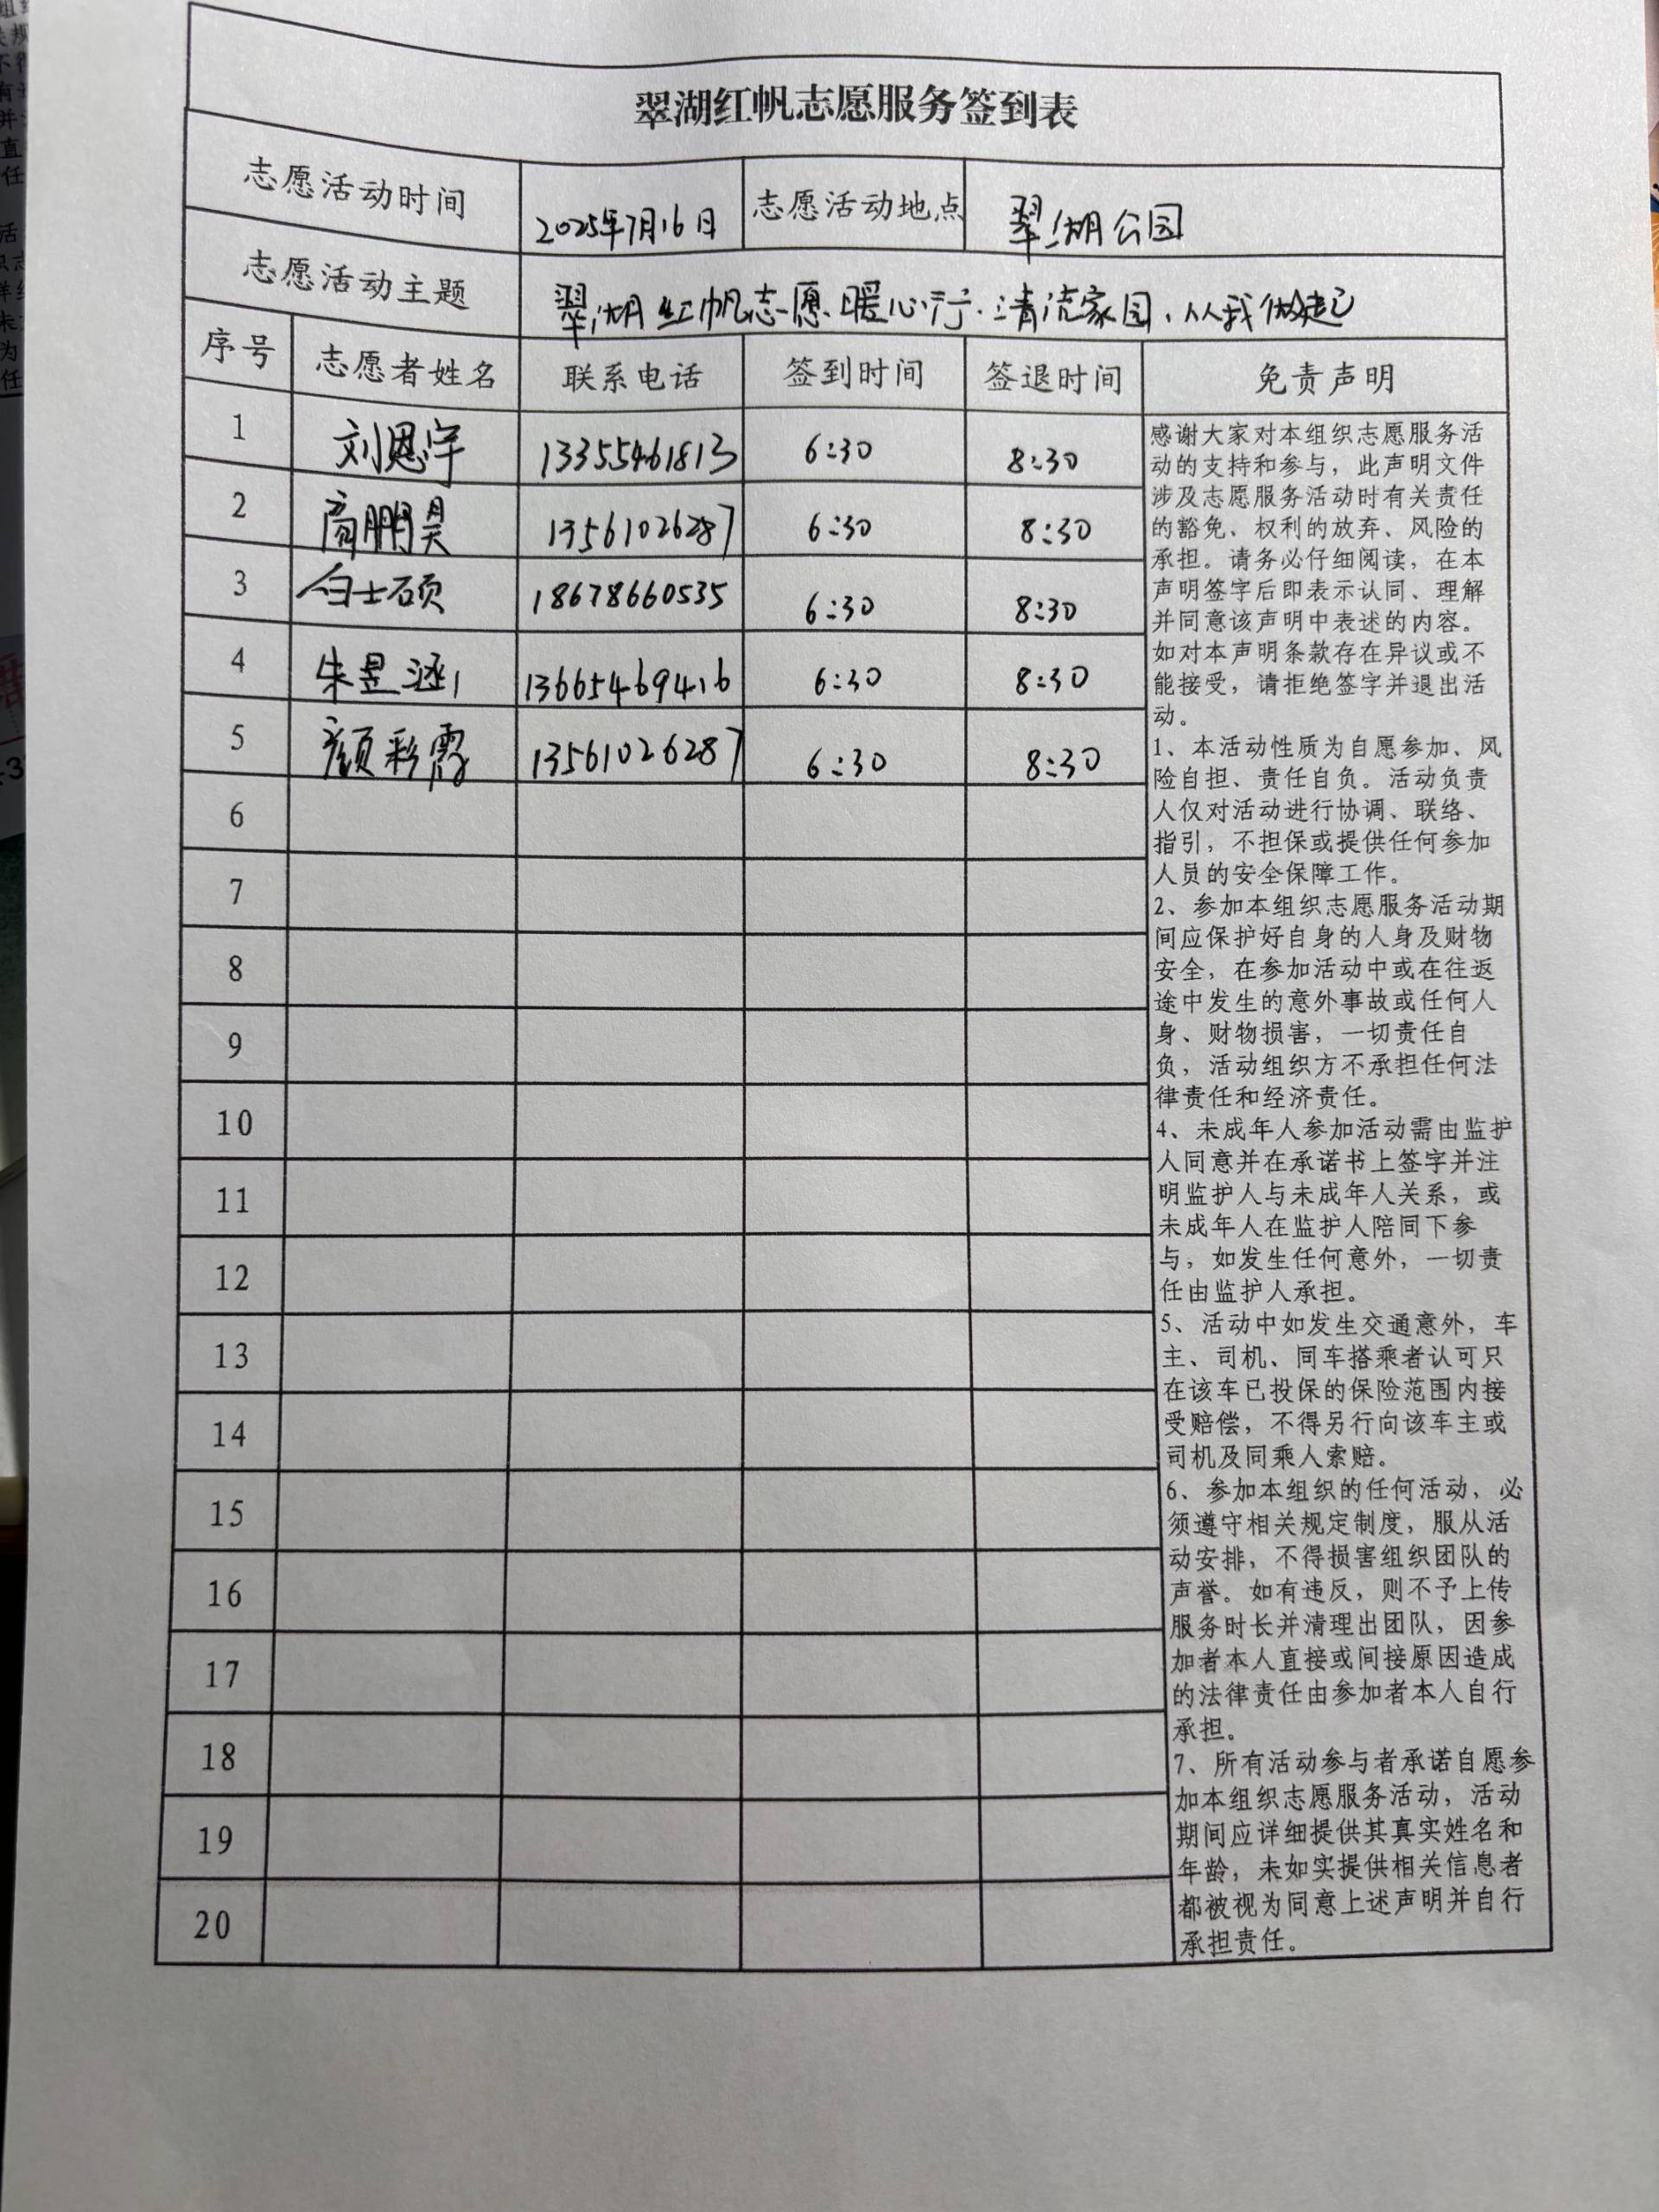 翠湖红帆志愿服务签到表
志愿活动时间 2025年7月16日 志愿活动地点 翠湖公园
志愿活动主题 翠湖红帆志愿暖心行·清洁家园、从我做起
序号 志愿者姓名 联系电话 签到时间 签退时间 免责声明
1 刘恩宇 13355461813 6:30 8:30
2 商鹏昊 13561026287 6:30 8:30
3 白士硕 18678660535 6:30 8:30
4 朱昱涵 13665469416 6:30 8:30
5 颜彩霞 13561026287 6:30 8:30
6
7
8
9
10
11
12
13
14
15
16
17
18
19
20
感谢大家对本组织志愿服务活
动的支持和参与，此声明文件
涉及志愿服务活动时有关责任
的豁免、权利的放弃、风险的
承担。请务必仔细阅读，在本
声明签字后即表示认同、理解
并同意该声明中表述的内容。
如对本声明条款存在异议或不
能接受，请拒绝签字并退出活
动。
1、本活动性质为自愿参加、风
险自担、责任自负。活动负责
人仅对活动进行协调、联络、
指引，不担保或提供任何参加
人员的安全保障工作。
2、参加本组织志愿服务活动期
间应保护好自身的人身及财物
安全，在参加活动中或在往返
途中发生的意外事故或任何人
身、财物损害，一切责任自
负，活动组织方不承担任何法
律责任和经济责任。
4、未成年人参加活动需由监护
人同意并在承诺书上签字并注
明监护人与未成年人关系，或
未成年人在监护人陪同下参
与，如发生任何意外，一切责
任由监护人承担。
5、活动中如发生交通意外，车
主、司机、同车搭乘者认可只
在该车已投保的保险范围内接
受赔偿，不得另行向该车主或
司机及同乘人索赔。
6、参加本组织的任何活动，必
须遵守相关规定制度，服从活
动安排，不得损害组织团队的
声誉。如有违反，则不予上传
服务时长并清理出团队，因参
加者本人直接或间接原因造成
的法律责任由参加者本人自行
承担。
7、所有活动参与者承诺自愿参
加本组织志愿服务活动，活动
期间应详细提供其真实姓名和
年龄，未如实提供相关信息者
都被视为同意上述声明并自行
承担责任。